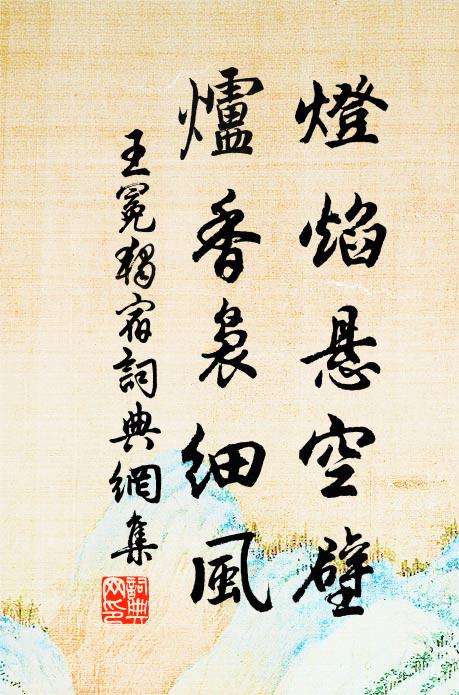 燈焰懸空壁
爐香裊細風
王冕獨宿詞典網集
詞典
网印